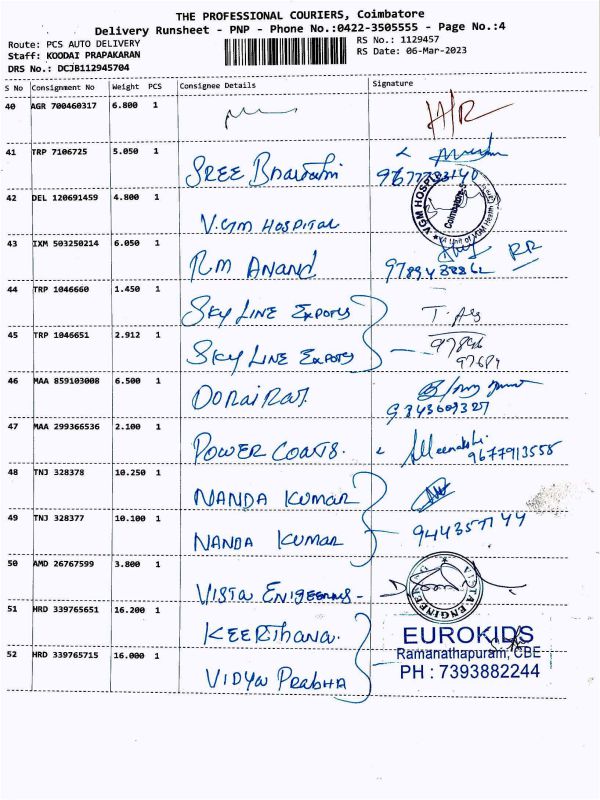 THE PROFESSIONAL COURIERS, Coimbatore
Delivery Runsheet - PNP - Phone No.:0422-3505555 - Page No.:4
Route: PCS AUTO DELIVERY
RS No.: 1129457
Staff: KOODAI PRAPAKARAN
RS Date: 06-Mar-2023
DRS No.: DCJB112945704
S No Consignment No Weight PCS Consignee Details Signature
40 AGR 700460317 6.800 1 H/R
41 TRP 7106725 5.050 1 SREE
42 DEL 120691459 4.800 1 V.GM HOSPITAL VGM HOSPITAL Coimbatore-5 (A Unit of VGM Health
43 IXM 503250214 6.050 1 RM ANAND RR
44 TRP 1046660 1.450 1 SKY LINE EXPORTS
45 TRP 1046651 2.912 1 SKY LINE EXPORTS
46 MAA 859103008 6.500 1 DORAIRAJ 9343609327
47 MAA 299366536 2.100 1 POWER COATS. Meenakshi 9677913555
48 TNJ 328378 10.250 1 NANDA KUMAR
49 TNJ 328377 10.100 1 NANDA KUMAR
50 AMD 26767599 3.800 1 VISTA ENIGEERING - VISTA ENGINEER
51 HRD 339765651 16.200 1 KEERTHANA. EUROKIDS
Ramanathapuram, CBE
52 HRD 339765715 16.000 1 VIDYA PRABHA PH : 7393882244